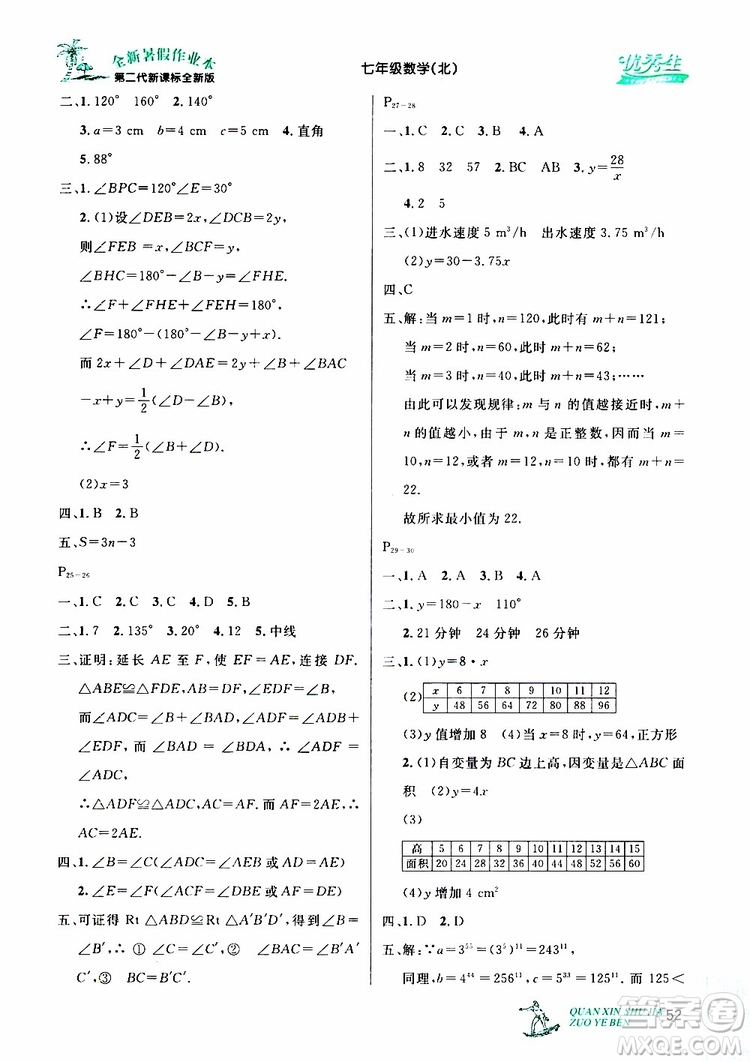 全新暑假作业本
第二代新课标全新版
七年级数学(北)
优秀生
二、1.120° 160° 2.140°
3.a=3 cm b=4 cm c=5 cm 4.直角
5.88°
三、1.∠BPC=110°∠E=30°
2.(1)设∠DEB=2x,∠DCB=2y,
则∠FEB =x,∠BCF=y
∠BHC=180°-∠B-y=∠FHE.
∴∠F+∠FHE+∠FEH=180°
∠F=180°-(180°-∠B-y)-x
而 2x+∠D+∠DAE=2y+∠B+∠BAC
-x+y=1/2(∠D-∠B)
∴∠F=1/2(∠D+∠B)
(2)x=3
四、1.B 2.B
五、S=3n-3
P25-26
一、1.C 2.C 3.C 4.D 5.B
二、1.7 2.135° 3.20° 4.12 5.中线
三、证明:延长 AE 至 F,使 EF=AE,连接 DF.
△ABE≌△FDE,∴∠EDF=∠B,
而∠ADC=∠B+∠BAD,∠ADF=∠ADB+
∠EDF,而∠BAD =∠BDA,∴∠ADF =
∠ADC, ∴△ADF≌△ADC, ∴AF=AC,
AC=2AE.
四、1.∠B=∠C(∠ADC=∠AEB 或 AD=AE)
2.∠E=∠F(∠ADF=∠DBE 或 AF=DE)
五、可证得 Rt △ABD≌Rt △A′B′D′,得到∠B=
∠B′, ∴ ① ∠C =∠C′ ② ∠BAC=∠B′A′
C′,③ BC=B′C′
P27-28
一、1.C 2.C 3.B 4.A
二、1.8 32 57 2.BC AB 3.y=28/x
4.2 5
三、(1)进水速度 5 m³/h 出水速度 3.75 m³/h
(2)y=30-3.75x
四、C
五、解:当 m=1 时,n=120,此时 m+n=121;
当 m=2 时,n=60,此时 m+n=62;
当 m=3 时,n=40,此时 m+n=43;……
由此可以发现规律:m 与 n 的值越接近时,m+
n 的值越小,由于 m,n 是正整数,所以 m=10,
n=12,或者 m=12,n=10 时,都有 m+n=
22.
故所求最小值为 22.
P29-30
一、1.A 2.A 3.C 4.A
二、1.y=180-x 110°
2.21 分钟 24 分钟 26 分钟
三、1.(1)y=8·x
(2) x 6 7 8 9 10 11 12
y 48 56 64 72 80 88 96
(3)y 值增加 8 (4)当 x=8 时,y=64,正方形
2.(1)自变量为 BC 边上高,因变量是△ABC 面
积 (2)y=4x
(3)
高 5 6 7 8 9 10 11 12 13 14 15
面积 20 24 28 32 36 40 44 48 52 56 60
(4)y 增加 4 cm²
四、1.D 2.D
五、解:∵a=3⁵⁵=(3⁵)¹¹=243¹¹,
同理,b=4⁴⁴=256¹¹,c=5³³=125¹¹.而 125<
QUAN XIN SHU JIA
ZUO YE BEN
52
答案圈
MXQE.COM